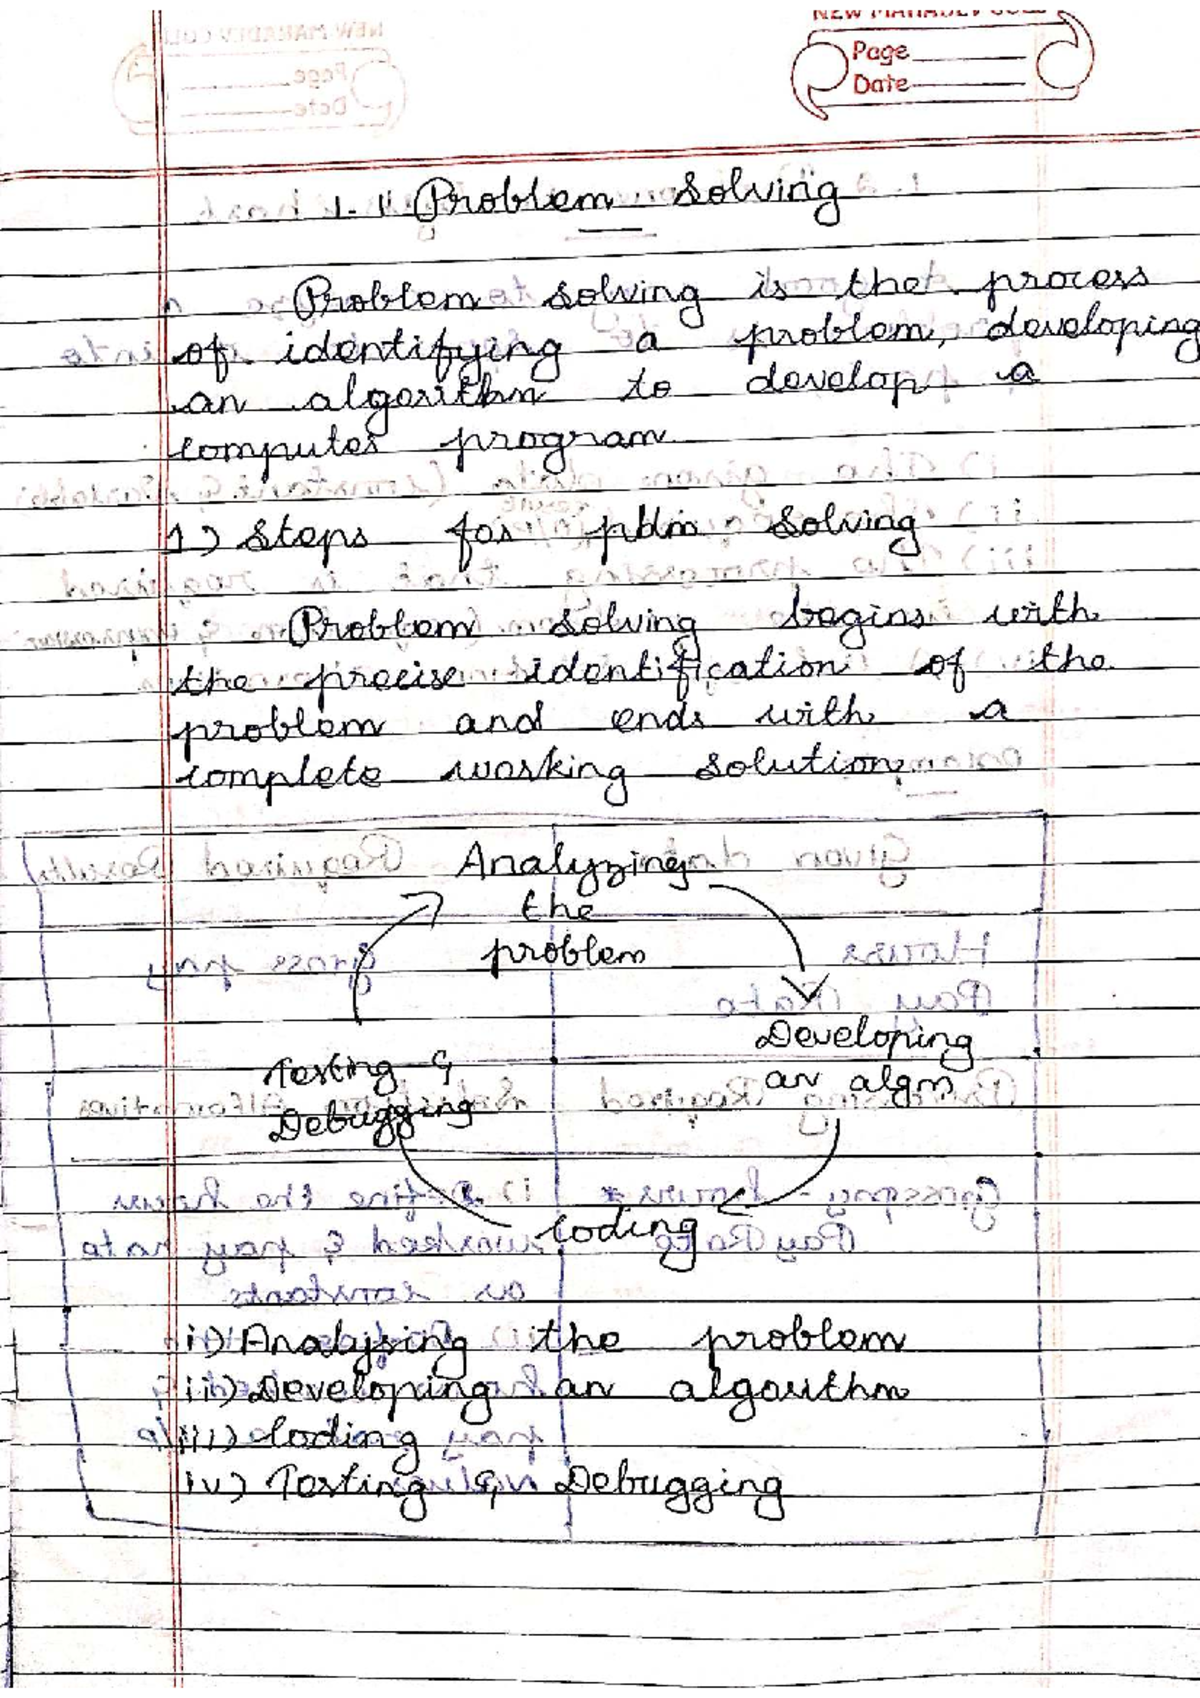 NEW MAHADEV COLL
Page
Date
1.1 Problem Solving
Problem solving is the process
of identifying a problem, developing
an algorithm to develop a
computer program
1) Steps for pblm Solving
Problem solving begins with
the precise identification of the
problem and ends with a
complete working solution.
Analyzing
the
problem
Developing
an algm
Coding
Testing &
Debugging
i) Analysing the problem
ii) Developing an algorithm
iii) Coding
iv) Testing & Debugging